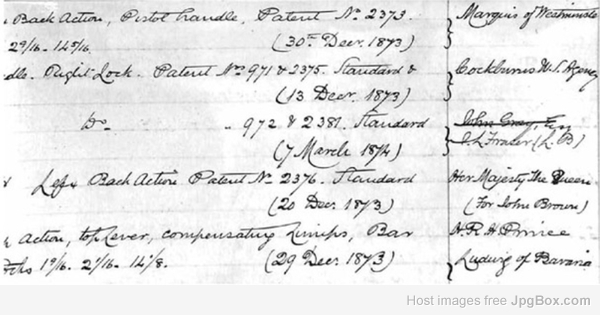 Back Action, Pistol handle, Patent No 2373. Marquis of Westminster
2 9/16 - 14 5/16. (30th Decr. 1873)
dle. Right Lock. Patent Nos 971 & 2375. Standard & Cockburns W. I. Agency
(13 Decr. 1873)
Do „ 972 & 2381. Standard John Gray, Esq
(7 March 1874) J L Fraser (L.B)
Left Back Action Patent No 2376. Standard Her Majesty the Queen
(20 Decr. 1873) (For John Brown)
Action, top lever, compensating Lumps, Bar H.R.H Prince
1 9/16. 2 1/16- 14 1/8. (29 Decr. 1873) Ludwig of Bavaria
Host images free JpgBox.com